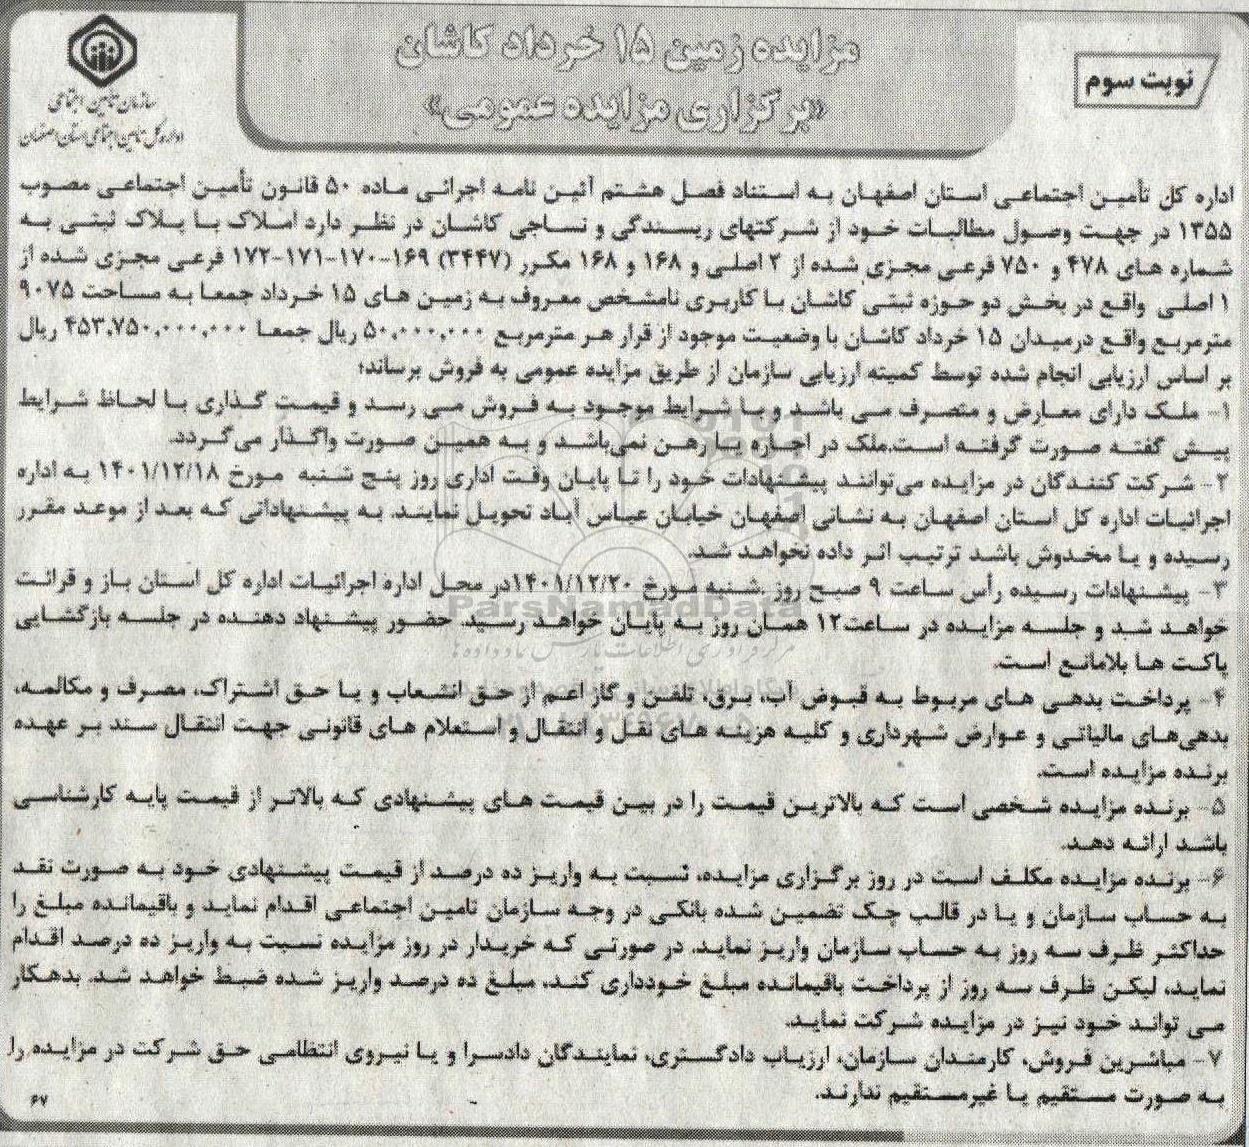 مزایده زمین ۱۵ خرداد کاشان
«برگزاری مزایده عمومی»
نوبت سوم
سازمان تأمین اجتماعی
اداره کل تامین اجتماعی استان اصفهان
اداره کل تأمین اجتماعی استان اصفهان به استناد فصل هشتم آئین نامه اجرائی ماده ۵۰ قانون تأمین اجتماعی مصوب
۱۳۵۵ در جهت وصول مطالبات خود از شرکتهای ریسندگی و نساجی کاشان در نظر دارد املاک با پلاک ثبتی به
شماره های ۴۷۸ و ۷۵۰ فرعی مجزی شده از ۲ اصلی و ۱۶۸ و ۱۶۸ مکرر (۳۴۴۷) ۱۶۹-۱۷۰-۱۷۱-۱۷۲ فرعی مجزی شده از
۱ اصلی واقع در بخش دو حوزه ثبتی کاشان با کاربری نامشخص معروف به زمین های ۱۵ خرداد جمعا به مساحت ۹۰۷۵
مترمربع واقع درمیدان ۱۵ خرداد کاشان با وضعیت موجود از قرار هر مترمربع ۵۰،۰۰۰،۰۰۰ ریال جمعا ۴۵۳،۷۵۰،۰۰۰،۰۰۰ ریال
بر اساس ارزیابی انجام شده توسط کمیته ارزیابی سازمان از طریق مزایده عمومی به فروش برساند؛
۱- ملک دارای معارض و متصرف می باشد و با شرایط موجود به فروش می رسد و قیمت گذاری با لحاظ شرایط
پیش گفته صورت گرفته است.ملک در اجاره یا رهن نمی‌باشد و به همین صورت واگذار می‌گردد.
۲- شرکت کنندگان در مزایده می‌توانند پیشنهادات خود را تا پایان وقت اداری روز پنج شنبه مورخ ۱۴۰۱/۱۲/۱۸ به اداره
اجرائیات اداره کل استان اصفهان به نشانی اصفهان خیابان عباس آباد تحویل نمایند. به پیشنهاداتی که بعد از موعد مقرر
رسیده و یا مخدوش باشد ترتیب اثر داده نخواهد شد.
۳- پیشنهادات رسیده رأس ساعت ۹ صبح روز شنبه مورخ ۱۴۰۱/۱۲/۲۰در محل اداره اجرائیات اداره کل استان باز و قرائت
خواهد شد و جلسه مزایده در ساعت۱۲ همان روز به پایان خواهد رسید. حضور پیشنهاد دهنده در جلسه بازگشایی
پاکت ها بلامانع است.
۴- پرداخت بدهی های مربوط به قبوض آب، برق، تلفن و گاز اعم از حق انشعاب و یا حق اشتراک، مصرف و مکالمه،
بدهی‌های مالیاتی و عوارض شهرداری و کلیه هزینه های نقل و انتقال و استعلام های قانونی جهت انتقال سند بر عهده
برنده مزایده است.
۵- برنده مزایده شخصی است که بالاترین قیمت را در بین قیمت های پیشنهادی که بالاتر از قیمت پایه کارشناسی
باشد ارائه دهد.
۶- برنده مزایده مکلف است در روز برگزاری مزایده، نسبت به واریز ده درصد از قیمت پیشنهادی خود به صورت نقد
به حساب سازمان و یا در قالب چک تضمین شده بانکی در وجه سازمان تامین اجتماعی اقدام نماید و باقیمانده مبلغ را
حداکثر ظرف سه روز به حساب سازمان واریز نماید. در صورتی که خریدار در روز مزایده نسبت به واریز ده درصد اقدام
نماید، لیکن ظرف سه روز از پرداخت باقیمانده مبلغ خودداری کند، مبلغ ده درصد واریز شده ضبط خواهد شد. بدهکار
می تواند خود نیز در مزایده شرکت نماید.
۷- مباشرین فروش، کارمندان سازمان، ارزیاب دادگستری، نمایندگان دادسرا و یا نیروی انتظامی حق شرکت در مزایده را
به صورت مستقیم یا غیرمستقیم ندارند.
۶۷
ParsNamadData